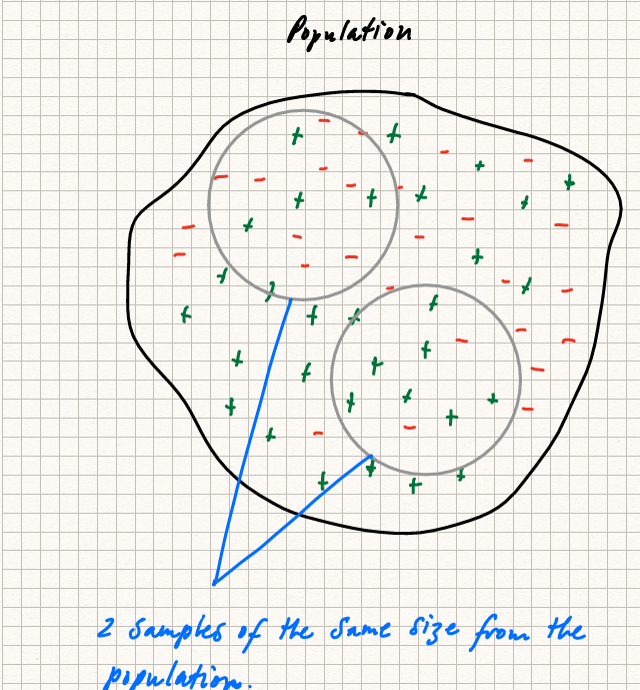 Population
2 samples of the same size from the
population.